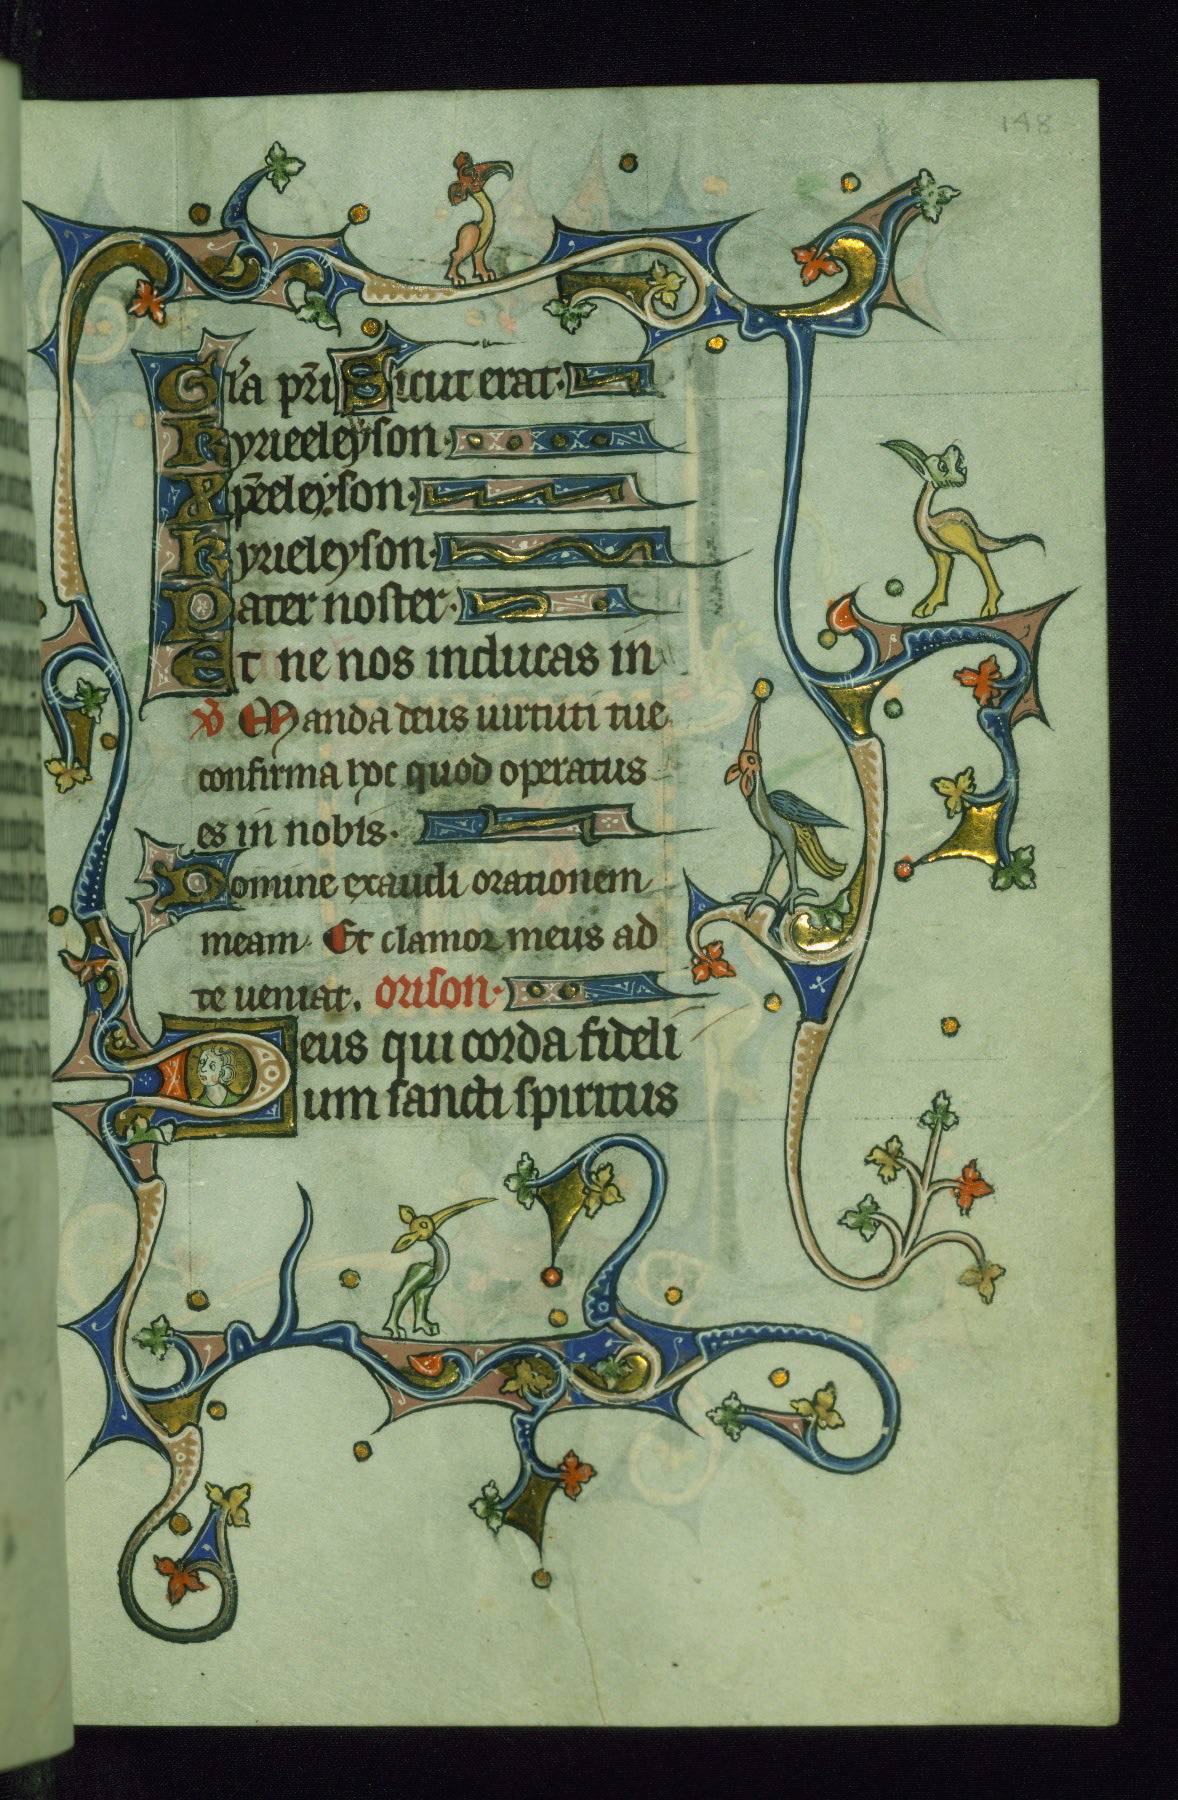 148
Gl'a pri Sicut erat.
Kyrieeleyson.
Xpeeleyson.
Kyrieleyson.
Pater noster.
Et ne nos inducas in
V Manda deus uirtuti tue
confirma hoc quod operatus
es in nobis.
Domine exaudi orationem
meam. Et clamor meus ad
te ueniat. orison.
Deus qui corda fideli
um sancti spiritus